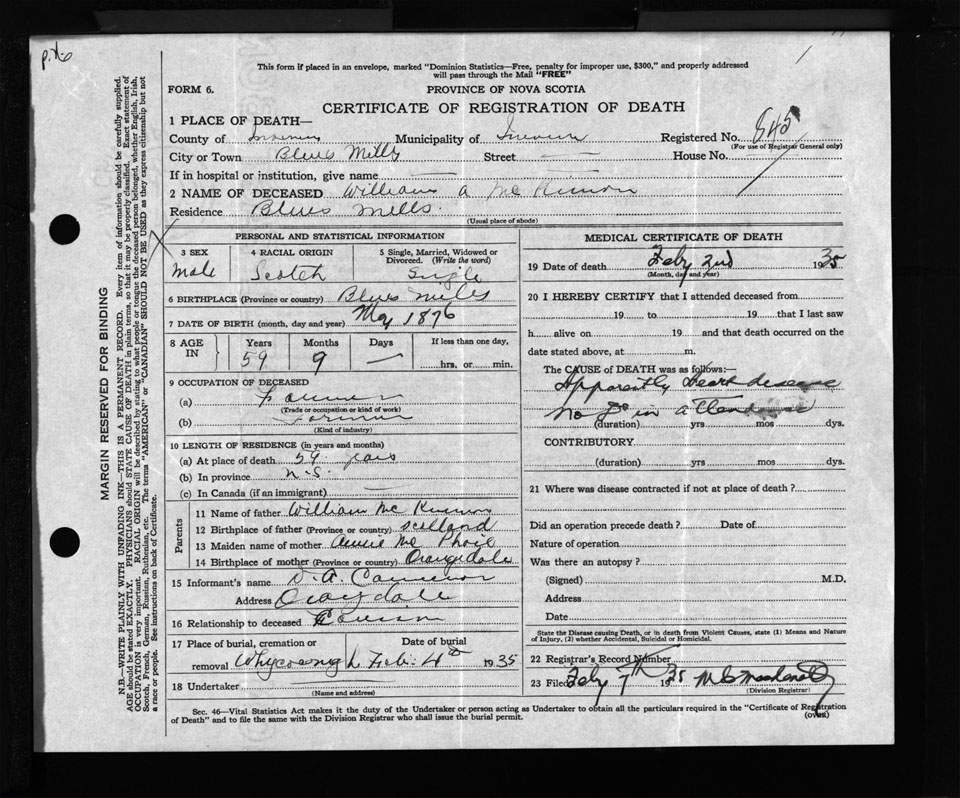 This form if placed in an envelope, marked "Dominion Statistics—Free, penalty for improper use, $300," and properly addressed
will pass through the Mail "FREE"
FORM 6. PROVINCE OF NOVA SCOTIA
CERTIFICATE OF REGISTRATION OF DEATH
1 PLACE OF DEATH—
County of Inverness Municipality of Inverness Registered No. 645
(For use of Registrar General only)
City or Town Blues Mills Street — House No. —
If in hospital or institution, give name —
2 NAME OF DECEASED William A McKinnon
Residence Blues Mills.
(Usual place of abode)
PERSONAL AND STATISTICAL INFORMATION
3 SEX 4 RACIAL ORIGIN 5 Single, Married, Widowed or
Divorced. (Write the word)
Male Scotch Single
6 BIRTHPLACE (Province or country) Blues Mills
7 DATE OF BIRTH (month, day and year) May 1876
8 AGE IN Years Months Days If less than one day,
59 9 — hrs. or min.
9 OCCUPATION OF DECEASED
(a) Farmer
(Trade or occupation or kind of work)
(b) Farmer
(Kind of industry)
10 LENGTH OF RESIDENCE (in years and months)
(a) At place of death 59 years
(b) In province N.S.
(c) In Canada (if an immigrant) —
Parents
11 Name of father William McKinnon
12 Birthplace of father (Province or country) Scotland
13 Maiden name of mother Annie McPhail
14 Birthplace of mother (Province or country) Orangedale
15 Informant's name D.A. Cameron
Address Orangedale
16 Relationship to deceased Cousin
17 Place of burial, cremation or Date of burial
removal Whycocomagh Feb. 4th 1935
18 Undertaker
(Name and address)
MEDICAL CERTIFICATE OF DEATH
19 Date of death Feby 2nd 1935
(Month, day and year)
20 I HEREBY CERTIFY that I attended deceased from
19 to 19 that I last saw
h alive on 19 and that death occurred on the
date stated above, at m.
The CAUSE of DEATH was as follows:—
Apparently heart disease
No Dr in attendance
(duration) yrs mos dys.
CONTRIBUTORY
(duration) yrs mos dys.
21 Where was disease contracted if not at place of death?
Did an operation precede death? Date of
Nature of operation
Was there an autopsy?
(Signed) M.D.
Address
Date
State the Disease causing Death, or in death from Violent Causes, state (1) Means and Nature
of Injury, (2) whether Accidental, Suicidal or Homicidal.
22 Registrar's Record Number
23 Filed Feby 7th 1935
(Division Registrar)
Sec. 46—Vital Statistics Act makes it the duty of the Undertaker or person acting as Undertaker to obtain all the particulars required in the "Certificate of Registration
of Death" and to file the same with the Division Registrar who shall issue the burial permit. (over)
MARGIN RESERVED FOR BINDING
N.B.—WRITE PLAINLY WITH UNFADING INK—THIS IS A PERMANENT RECORD. Every item of information should be carefully supplied.
AGE should be stated EXACTLY. PHYSICIANS should STATE CAUSE OF DEATH in plain terms, so that it may be properly classified. Exact statement of
OCCUPATION is very important. RACIAL ORIGIN will be described by stating to what people or tongue the deceased person belonged, whether English, Irish,
Scotch, French, German, Russian, Ruthenian, etc. The terms "AMERICAN" or "CANADIAN" SHOULD NOT BE USED as they express citizenship but not
a race or people. See instructions on back of Certificate.